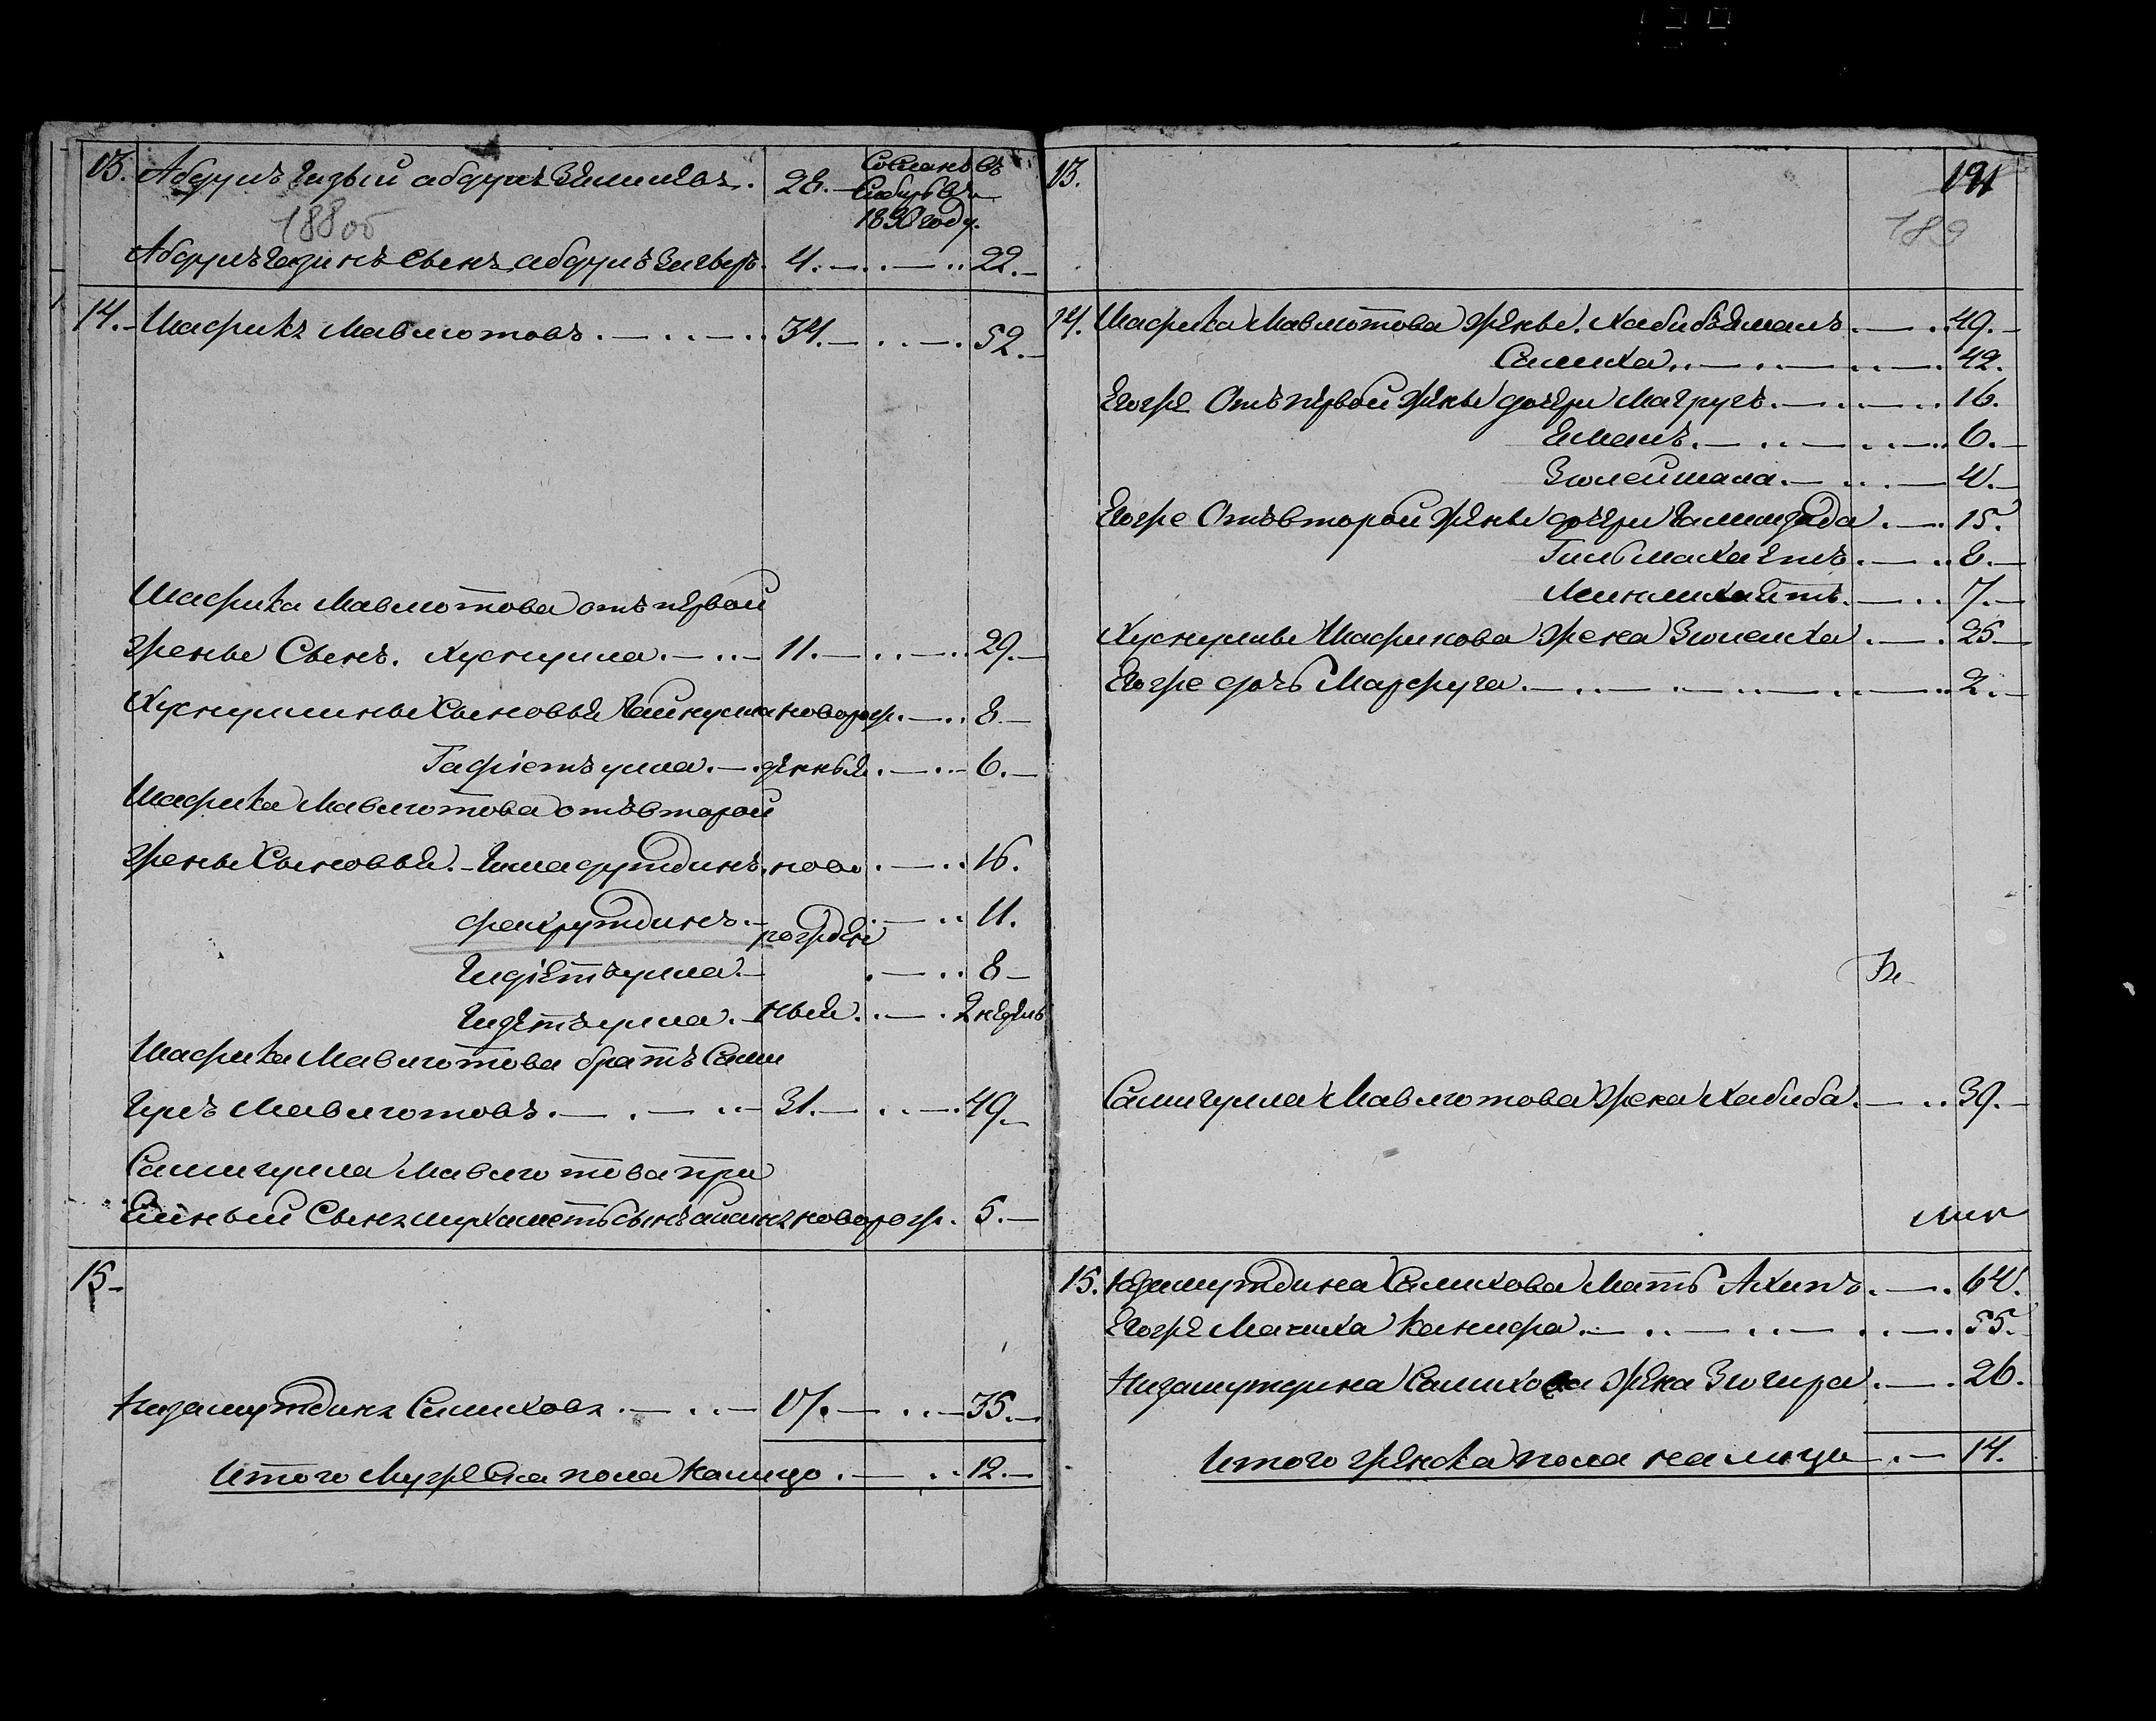 13. Абдулъ Газый абдулъ Зелиловъ. 28. Сосланъ въ
Сибирь въ
1838 году.
188 об
Абдулъ Газинъ сынъ абдулъ Загыръ. 4. 22.
14. Шафикъ Мавлютовъ. 34. 52.
Шафика Мавлютова отъ первой
жены Сынъ. Хуснулла. 11. 29.
Хуснуллины Сыновья Гайнулла новорож. 8.
Гафіетъулла. денныя. 6.
Шафика Мавлютова отъ второй
жены Сыновья. Гиласрутдинъ. ново 16.
фахрутдинъ. рожден 11.
Гидіетъулла. 8
Гидетъулла. ныя. 2 недель
Шафика Мавлютова братъ Сами
Гулъ Мавлютовъ. 31. 49.
Самигулла Мавлютова при
Емный Сынъ новорож. 5.
15
Низамутдинъ Салиховъ. 17. 35.
Итого Мужеска пола налицо. 12.
13. 191
189
14. Шафика Мавлютова жены. Хабибъямалъ. 49.
Салиха. 42.
Егоже Отъ первой жены дочери Магрузъ. 16.
Емалъ. 6.
Зюлейшана. 4.
Егоже Отъ второй жены дочери 15.
Гильмихаятъ. 8.
Минлихаятъ. 7.
Хуснуллы Шафикова жена Зюлейха. 25.
Егоже дочь Марфуга. 2.
Самигулла Мавлютова жена Хабиба. 39.
15. Низамутдина Салихова Мать Ахипъ. 64.
Егоже Мачиха Канифа. 55.
Низамутдина Салихова жена Зюгира. 26.
Итого женска пола на лицо 14.